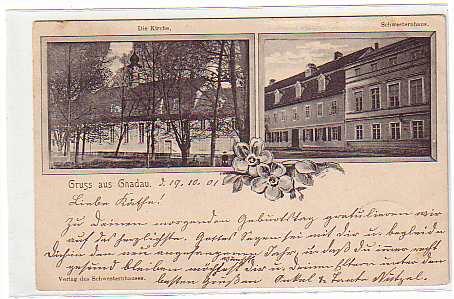 Die Kirche.
Schwesternhaus.
Gruss aus Gnadau. d. 19.10.01
Liebe Käthe!
Zu deinem morgenden Geburtstag gratulieren wir
auf das herzlichste. Gottes Segen sei mit dir u. begleide
Dich in den neu angefangenen Jahr, u. daß du immer recht
gesund bleiben möchtest dir u. deinen Eltern unter den
besten Grüßen Onkel & Tante Nützel.
Verlag des Schwesternhauses.